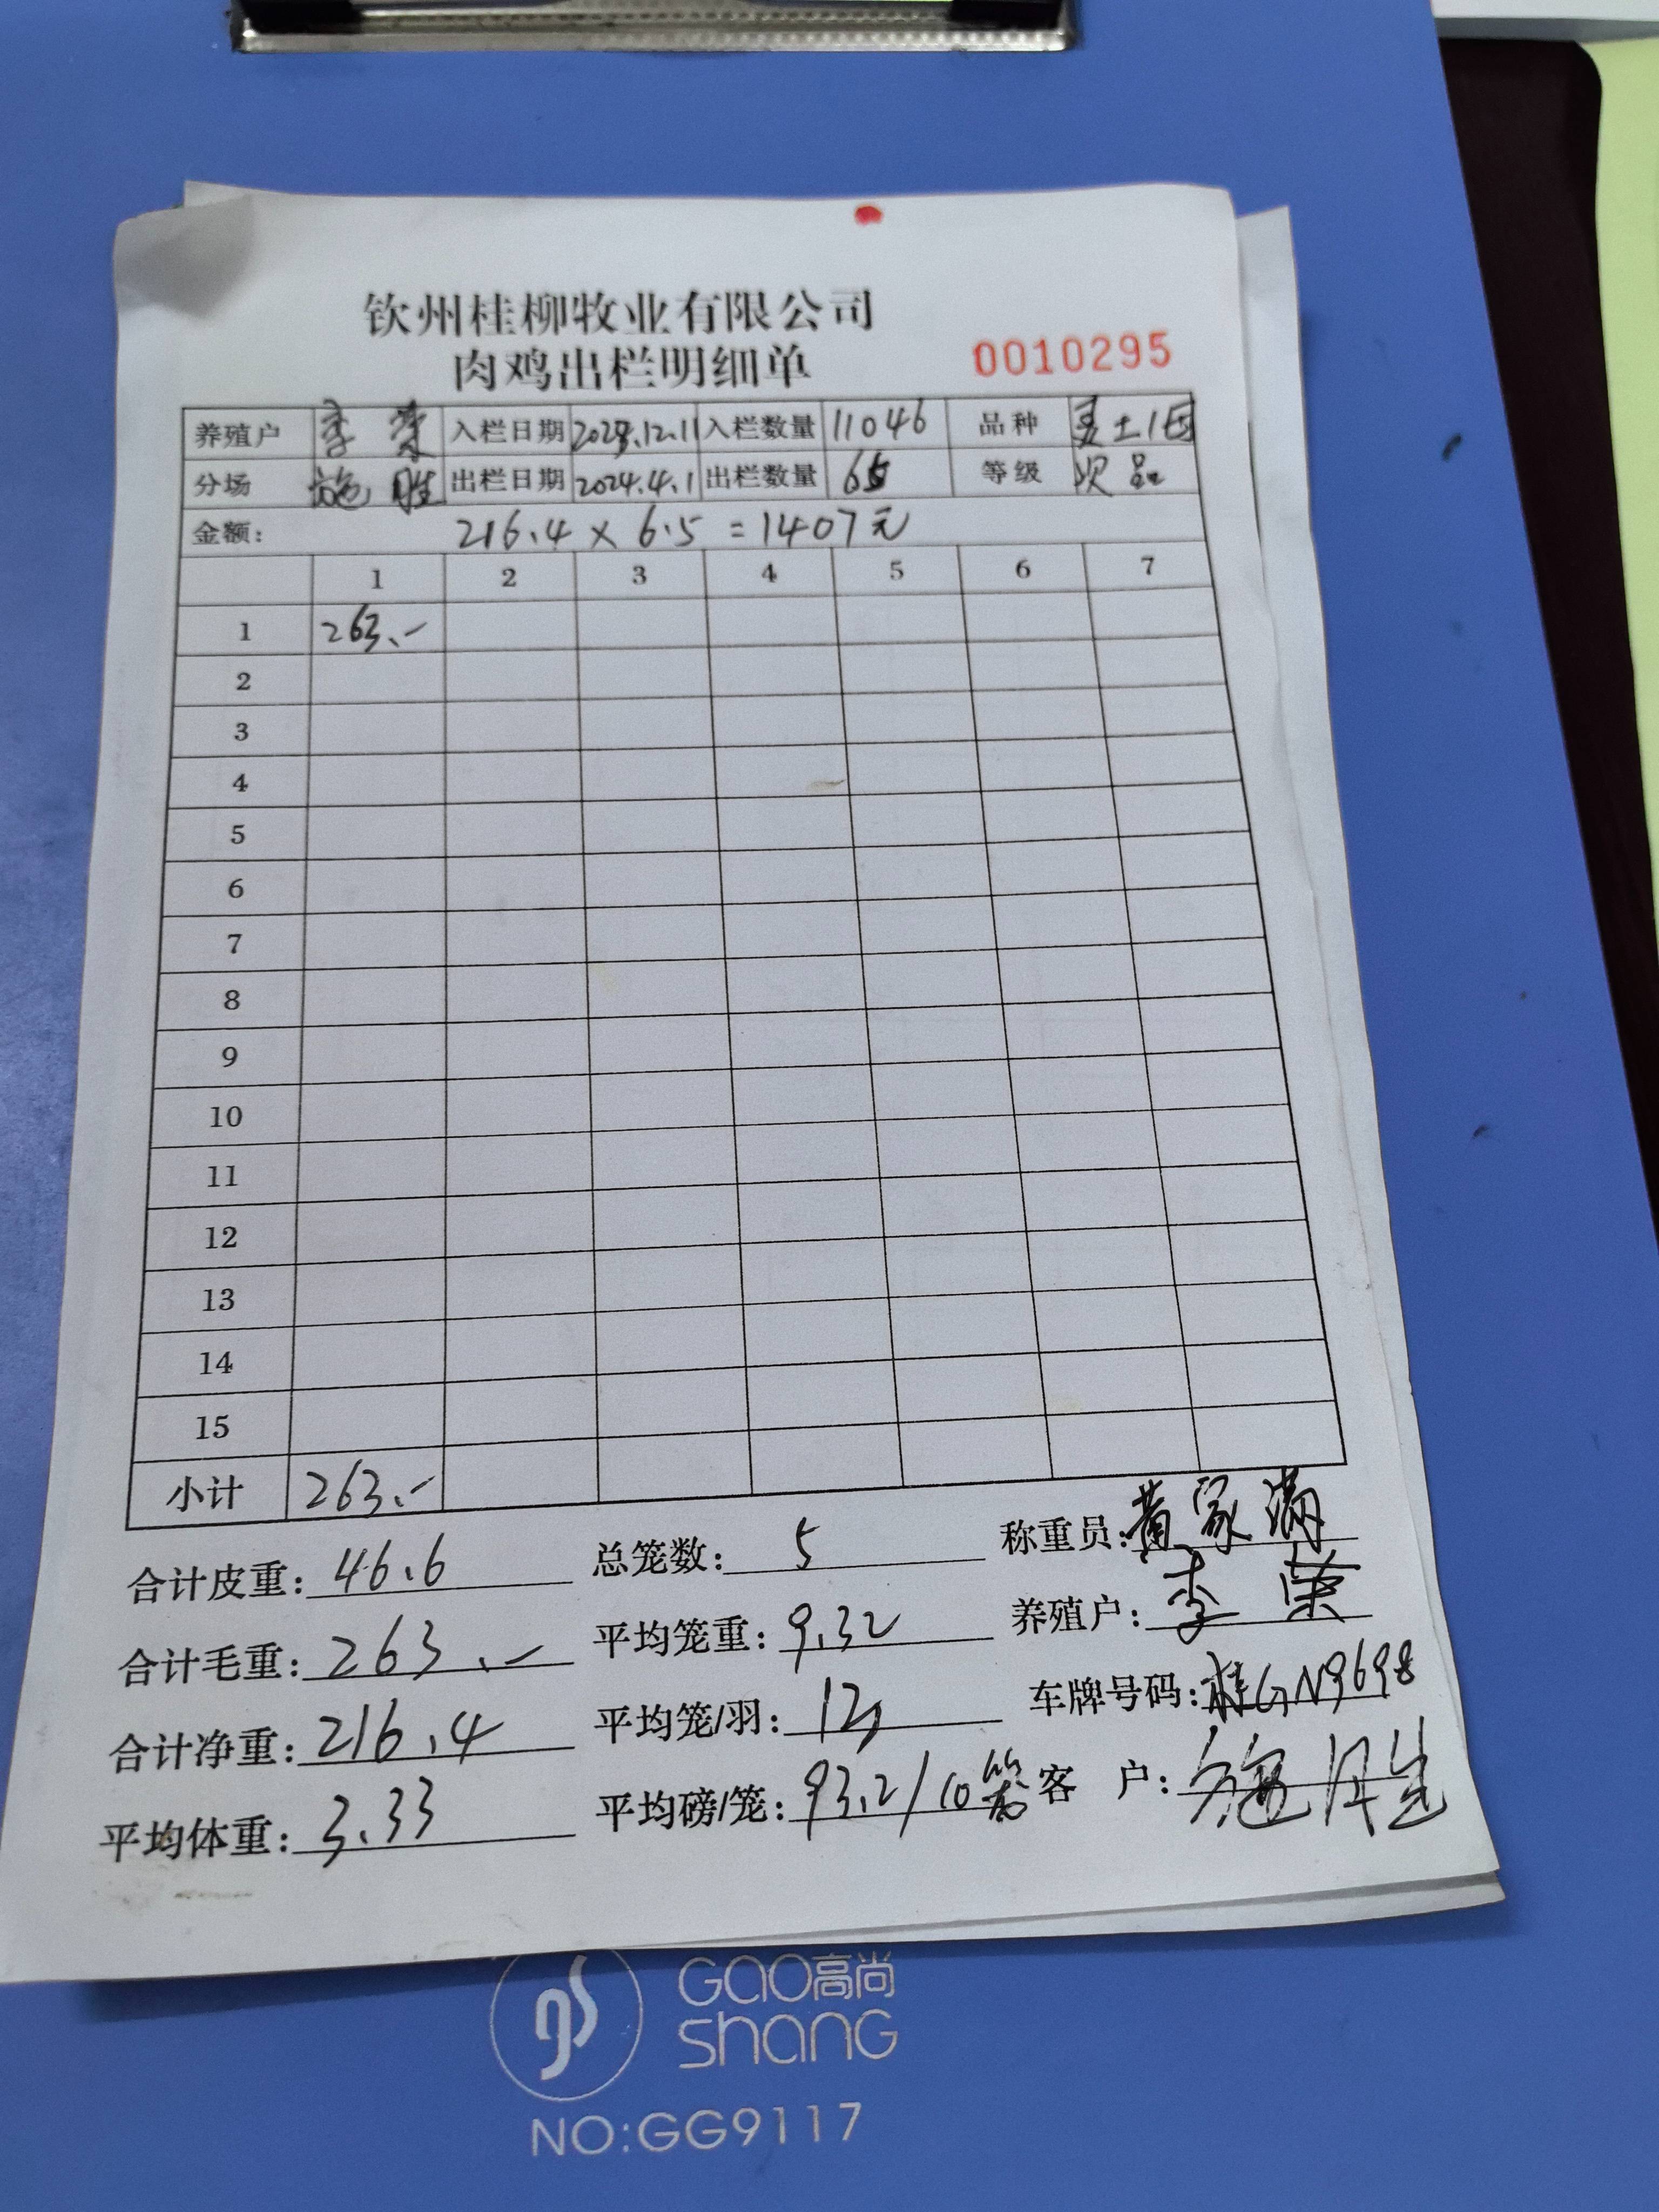 钦州桂柳牧业有限公司
肉鸡出栏明细单 0010295
养殖户 李荣 入栏日期 2023.12.11 入栏数量 11046 品种 土1母
分场 施胜 出栏日期 2024.4.1 出栏数量 65 等级 次品
金额: 216.4 × 6.5 = 1407元
1 2 3 4 5 6 7
1 263.-
2
3
4
5
6
7
8
9
10
11
12
13
14
15
小计 263.-
合计皮重: 46.6 总笼数: 5 称重员: 黄家满
合计毛重: 263.- 平均笼重: 9.32 养殖户: 李荣
合计净重: 216.4 平均笼/羽: 12 车牌号码: 桂GN9698
平均体重: 3.33 平均磅/笼: 93.2/10笼 客户: 施胜
gs GAO高尚
ShanG
NO:GG9117